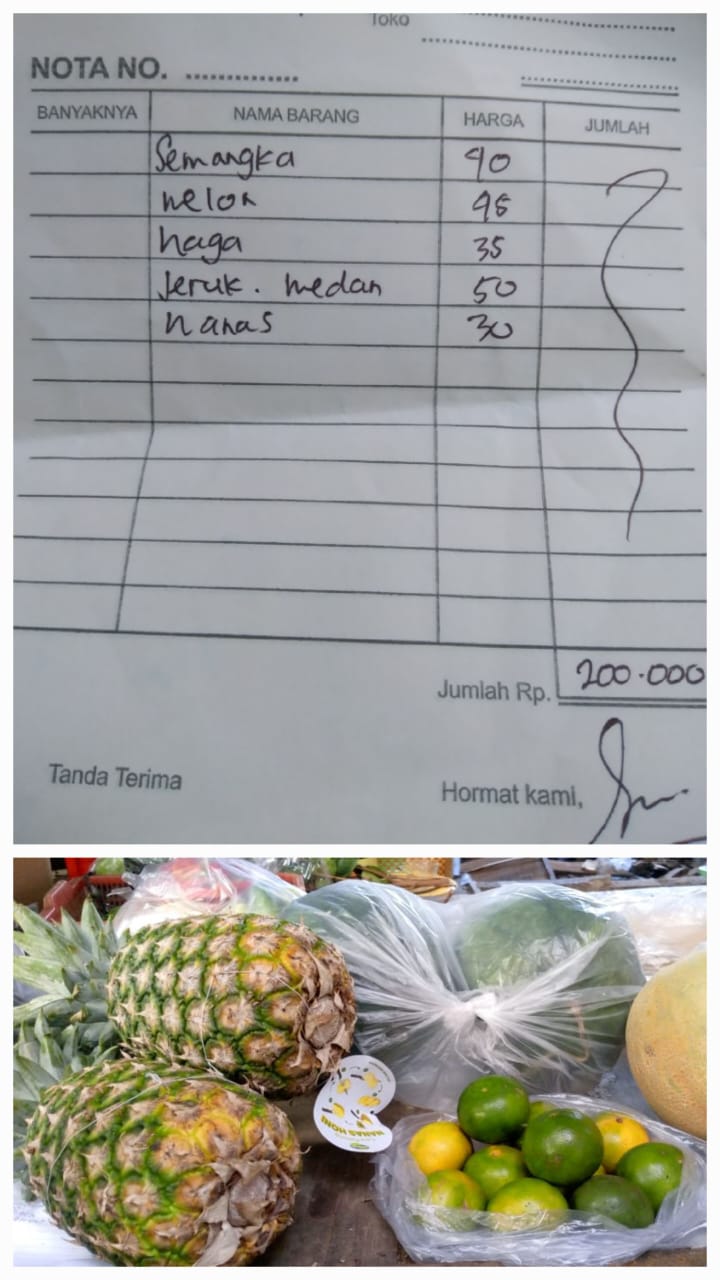 Toko
NOTA NO.
BANYAKNYA NAMA BARANG HARGA JUMLAH
Semangka 40
melon 45
naga 35
Jeruk. medan 50
nanas 30
Jumlah Rp. 200.000
Tanda Terima
Hormat kami,
NANAS HONI